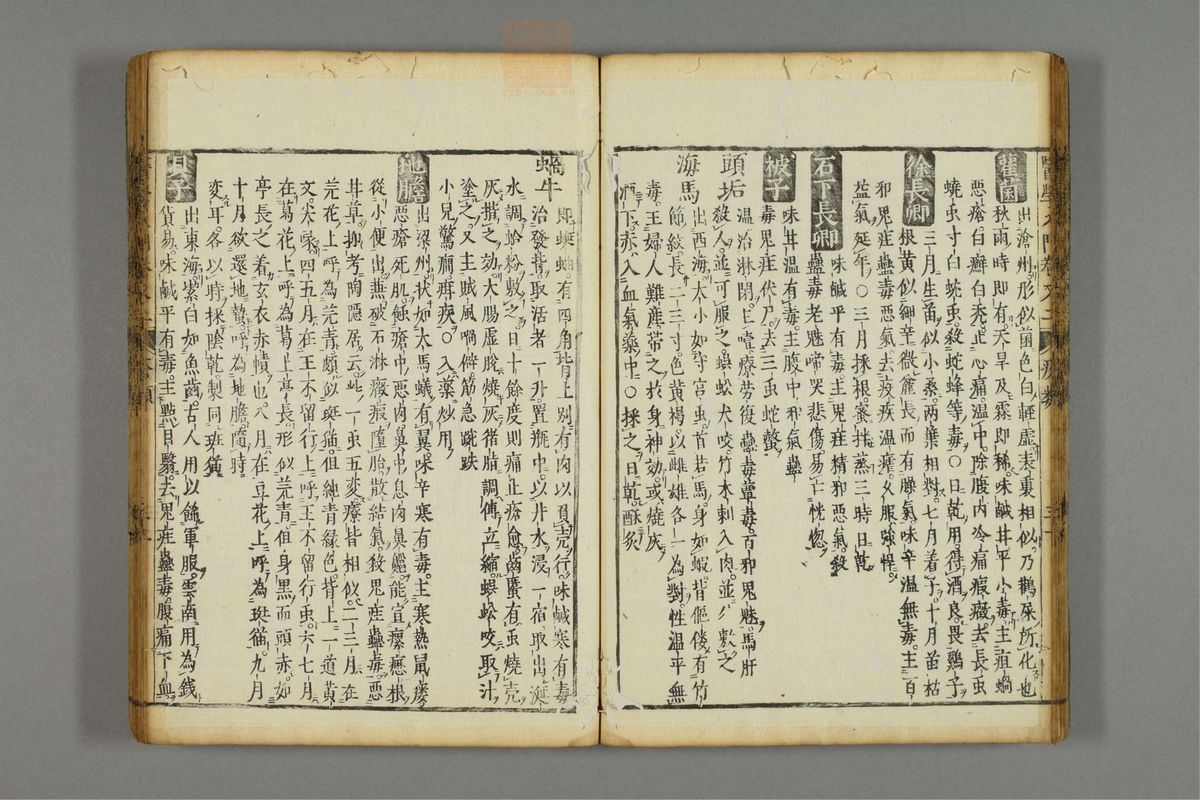 雚菌
出滄州形似菌色白輕虛表裏相似乃鸛屎所化也
秋雨時即有天旱及霖即稀味鹹甘平小毒主疽蝸
惡瘡白癬白禿止心痛溫中除腹內冷痛瘕癥去長虫
蟯虫寸白蚘虫殺蛇蜂等毒○日乾用得酒良畏鷄子
徐長卿
三月生苗似小桑兩葉相對七月着子十月苗枯
根黃似細辛微麄長而有臊氣味辛溫無毒主百
邪鬼疰蠱毒惡氣去疫疾溫瘧久服強悍
益氣延年○三月採根蜜拌蒸三時日乾
石下長卿
味鹹平有毒主鬼疰精邪惡氣殺
蠱毒老魅啼哭悲傷易亡恍惚
彼子
味甘溫有毒主腹中邪氣蠱
毒鬼疰伏尸去三虫蛇螫
頭垢
溫治淋閉上噎療勞復蠱毒蕈毒百邪鬼魅馬肝
殺人並可服之蜈蚣犬咬竹木刺入肉並敷之
海馬
出西海大小如守宮虫首若馬身如蝦背傴僂有竹
節紋長二三寸色黃褐以雌雄各一為對性溫平無
毒主婦人難產帶之於身神効或燒灰
酒下亦入血氣藥中○採之日乾酥炙
蝸牛
即蜒蚰有四角背上別有肉以負壳行味鹹寒有毒
治發背取活者一升置瓶中以井水浸一宿取出涎
水調蛤粉敷之日十餘度則痛止瘡愈齒䘌有虫燒壳
灰揩之効大腸虛脫燒灰猪脂調傅立縮蜈蚣咬取汁
塗之又主賊風喎僻筋急跪跌
小兒驚癇臍疾○入藥炒用
地膽
出梁州狀如大馬蟻有翼味辛寒有毒主寒熱鼠瘻
惡瘡死肌蝕瘡中惡肉鼻中息肉鼻齆能宣瘰癧根
從小便出兼破石淋癥瘕墮胎散結氣殺鬼疰蠱毒惡
甘草抝考陶隱居云此一虫五変療皆相似二三月在
芫花上呼為芫青頗似斑猫但純青緑色背上一道黃
文尖喙四五月在王不留行上呼王不留行虫六七月
在葛花上呼為葛上亭長形似芫青但身黑而頭赤如
亭長之着玄衣赤幘也八月在豆花上呼為斑猫九月
十月欲還地蟄呼為地膽隨時
変耳各以時採陰乾製同斑猫
貝子
出東海潔白如魚齒古人用以飾軍服雲南用為錢
貨易味鹹平有毒主點目翳去鬼疰蠱毒腹痛下血